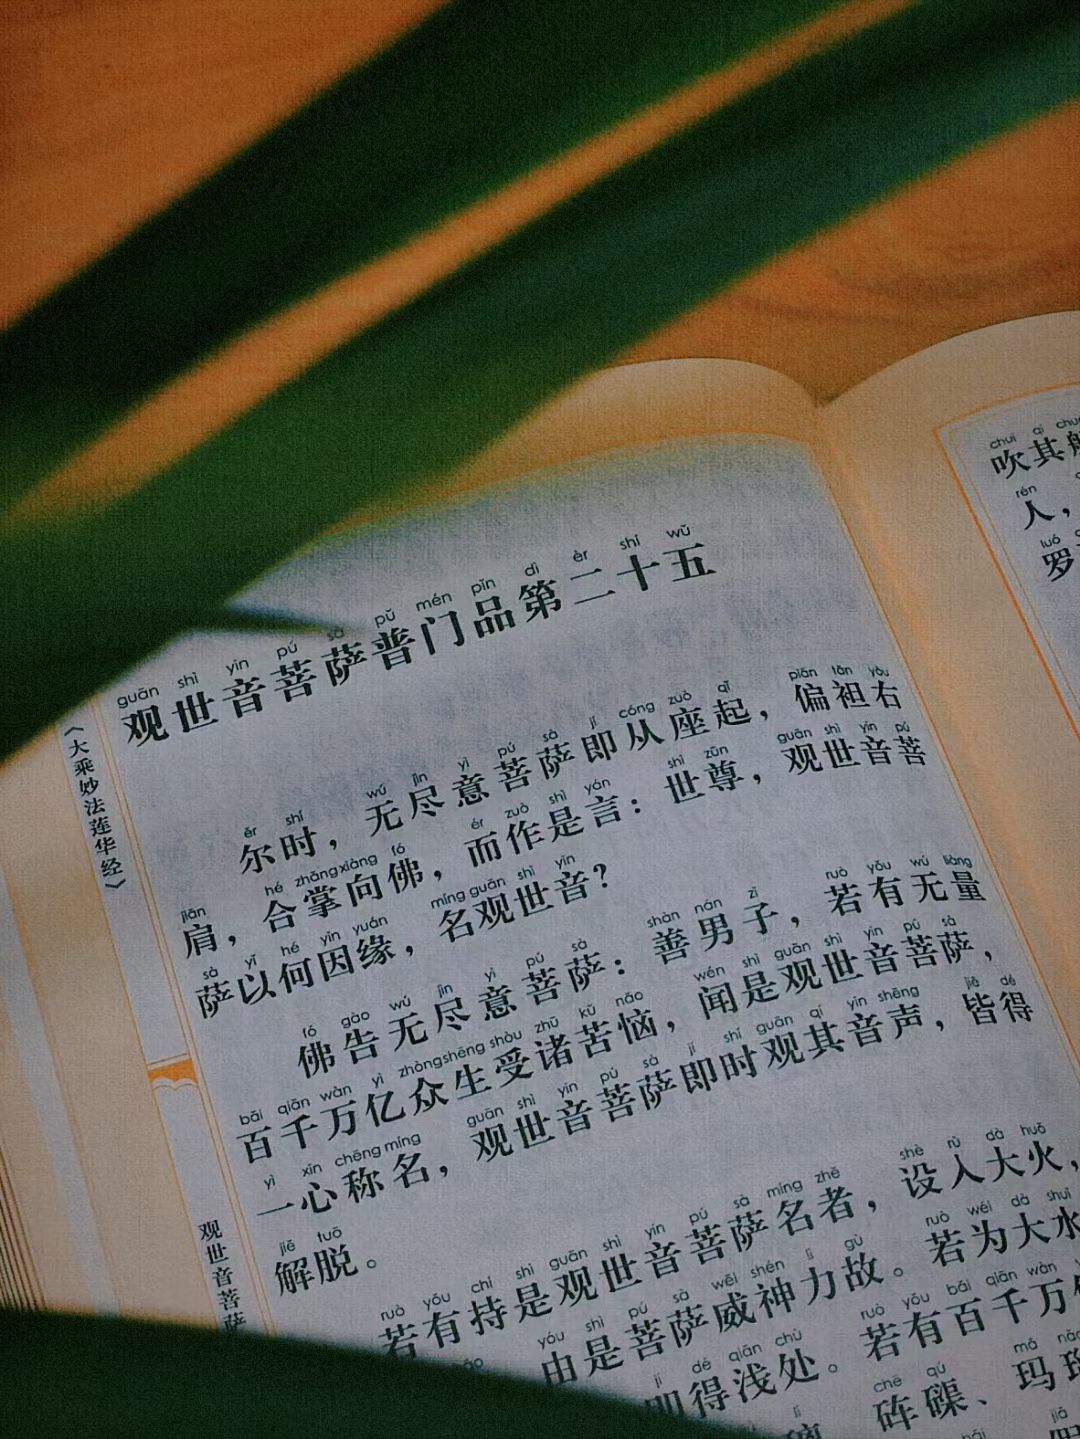 guān shì yīn pú sà pǔ mén pǐn dì èr shí wǔ
观世音菩萨普门品第二十五
ěr shí wú jìn yì pú sà jí cóng zuò qǐ piān tǎn yòu
尔时，无尽意菩萨即从座起，偏袒右
jiān hé zhǎng xiàng fó ér zuò shì yán shì zūn guān shì yīn pú
肩，合掌向佛，而作是言：世尊，观世音菩
sà yǐ hé yīn yuán míng guān shì yīn
萨以何因缘，名观世音？
fó gào wú jìn yì pú sà shàn nán zǐ ruò yǒu wú liàng
佛告无尽意菩萨：善男子，若有无量
bǎi qiān wàn yì zhòng shēng shòu zhū kǔ nǎo wén shì guān shì yīn pú sà
百千万亿众生受诸苦恼，闻是观世音菩萨，
yì xīn chēng míng guān shì yīn pú sà jí shí guān qí yīn shēng jiē dé
一心称名，观世音菩萨即时观其音声，皆得
jiě tuō
解脱。
ruò yǒu chí shì guān shì yīn pú sà míng zhě shè rù dà huǒ
若有持是观世音菩萨名者，设入大火，
yóu shì pú sà wēi shén lì gù ruò wéi dà shuǐ
由是菩萨威神力故。若为大水
dé qiǎn chù ruò yǒu bǎi qiān wàn
即得浅处。若有百千万
chē qú mǎ
砗磲、玛
《大乘妙法莲华经》
观世音菩萨
chuī qí
吹其
rén
人，
luó
罗